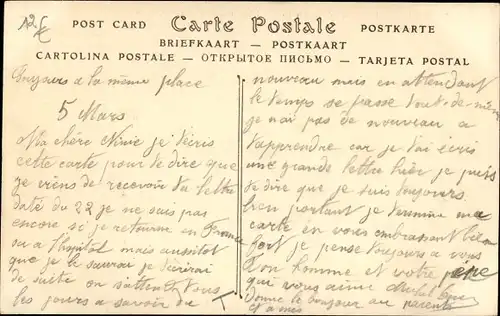 12 €
POST CARD Carte Postale POSTKARTE
BRIEFKAART — POSTKAART
CARTOLINA POSTALE — ОТКРЫТОЕ ПИСЬМО — TARJETA POSTAL
toujours a la même place
5 Mars
Ma chère Ninie je t'écris
cette carte pour te dire que
je viens de recevoir ta lettre
daté du 22 je ne sais pas
encore si je retourne en France
ou a l'hopital mais aussitot
que je le saurai je t'écrirai
de suite on s'attend tous
les jours a savoir du
nouveau mais en attendant
le temps se passe tout de même
je n'ai pas de nouveau a
t'apprendre car je t'ai écris
une grande lettre hier je puis
te dire que je suis toujours
bien portant je termine ma
carte en vous embrassant bien
fort je pense toujours a vous
Ton homme et votre père
qui vous aime
Donne le bonjour au parents
et amis